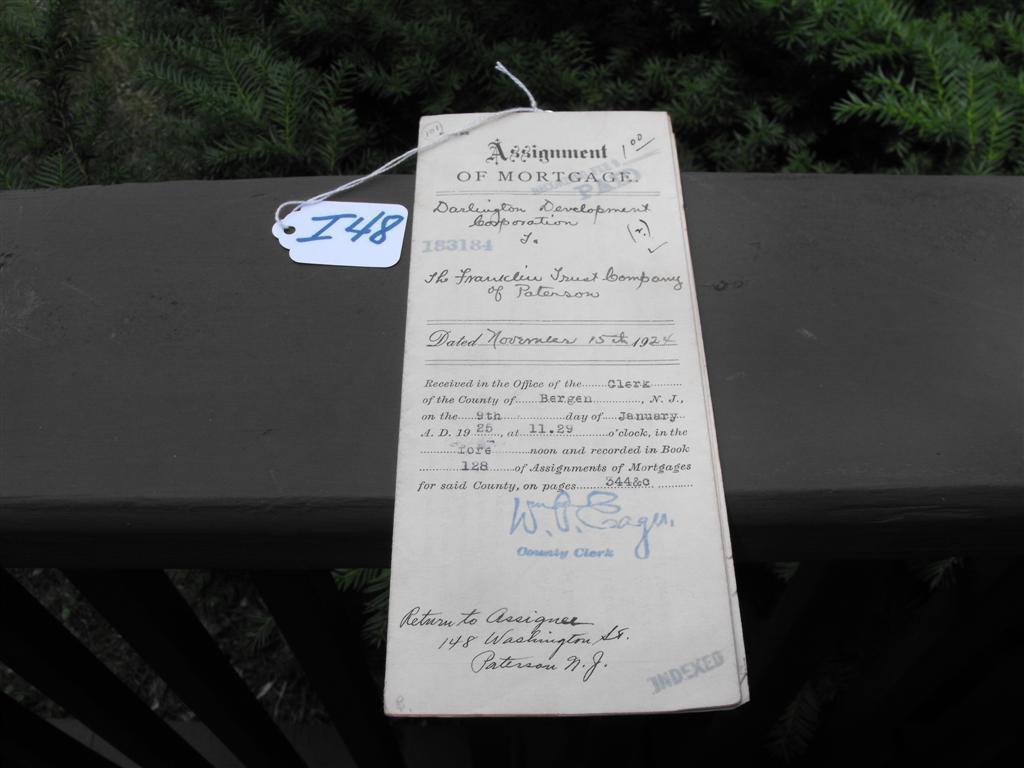 I48
101
Assignment
1 00
OF MORTGAGE.
PAID
Darlington Development
Corporation
(r.)
183184
The Franklin Trust Company
of Paterson
Dated November 15th 1924
Received in the Office of the Clerk
of the County of Bergen, N. J.,
on the 9th day of January
A. D. 19 25, at 11.29 o'clock, in the
fore noon and recorded in Book
128 of Assignments of Mortgages
for said County, on pages 344&c
County Clerk
Return to Assignee
148 Washington St.
Paterson N. J.
INDEXED